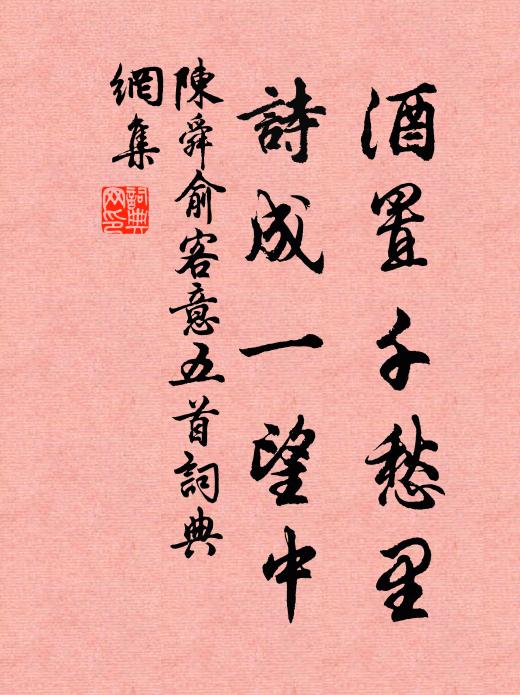 酒置千愁里
詩成一望中
陳舜俞客意五首詞典
網集
詞典网印